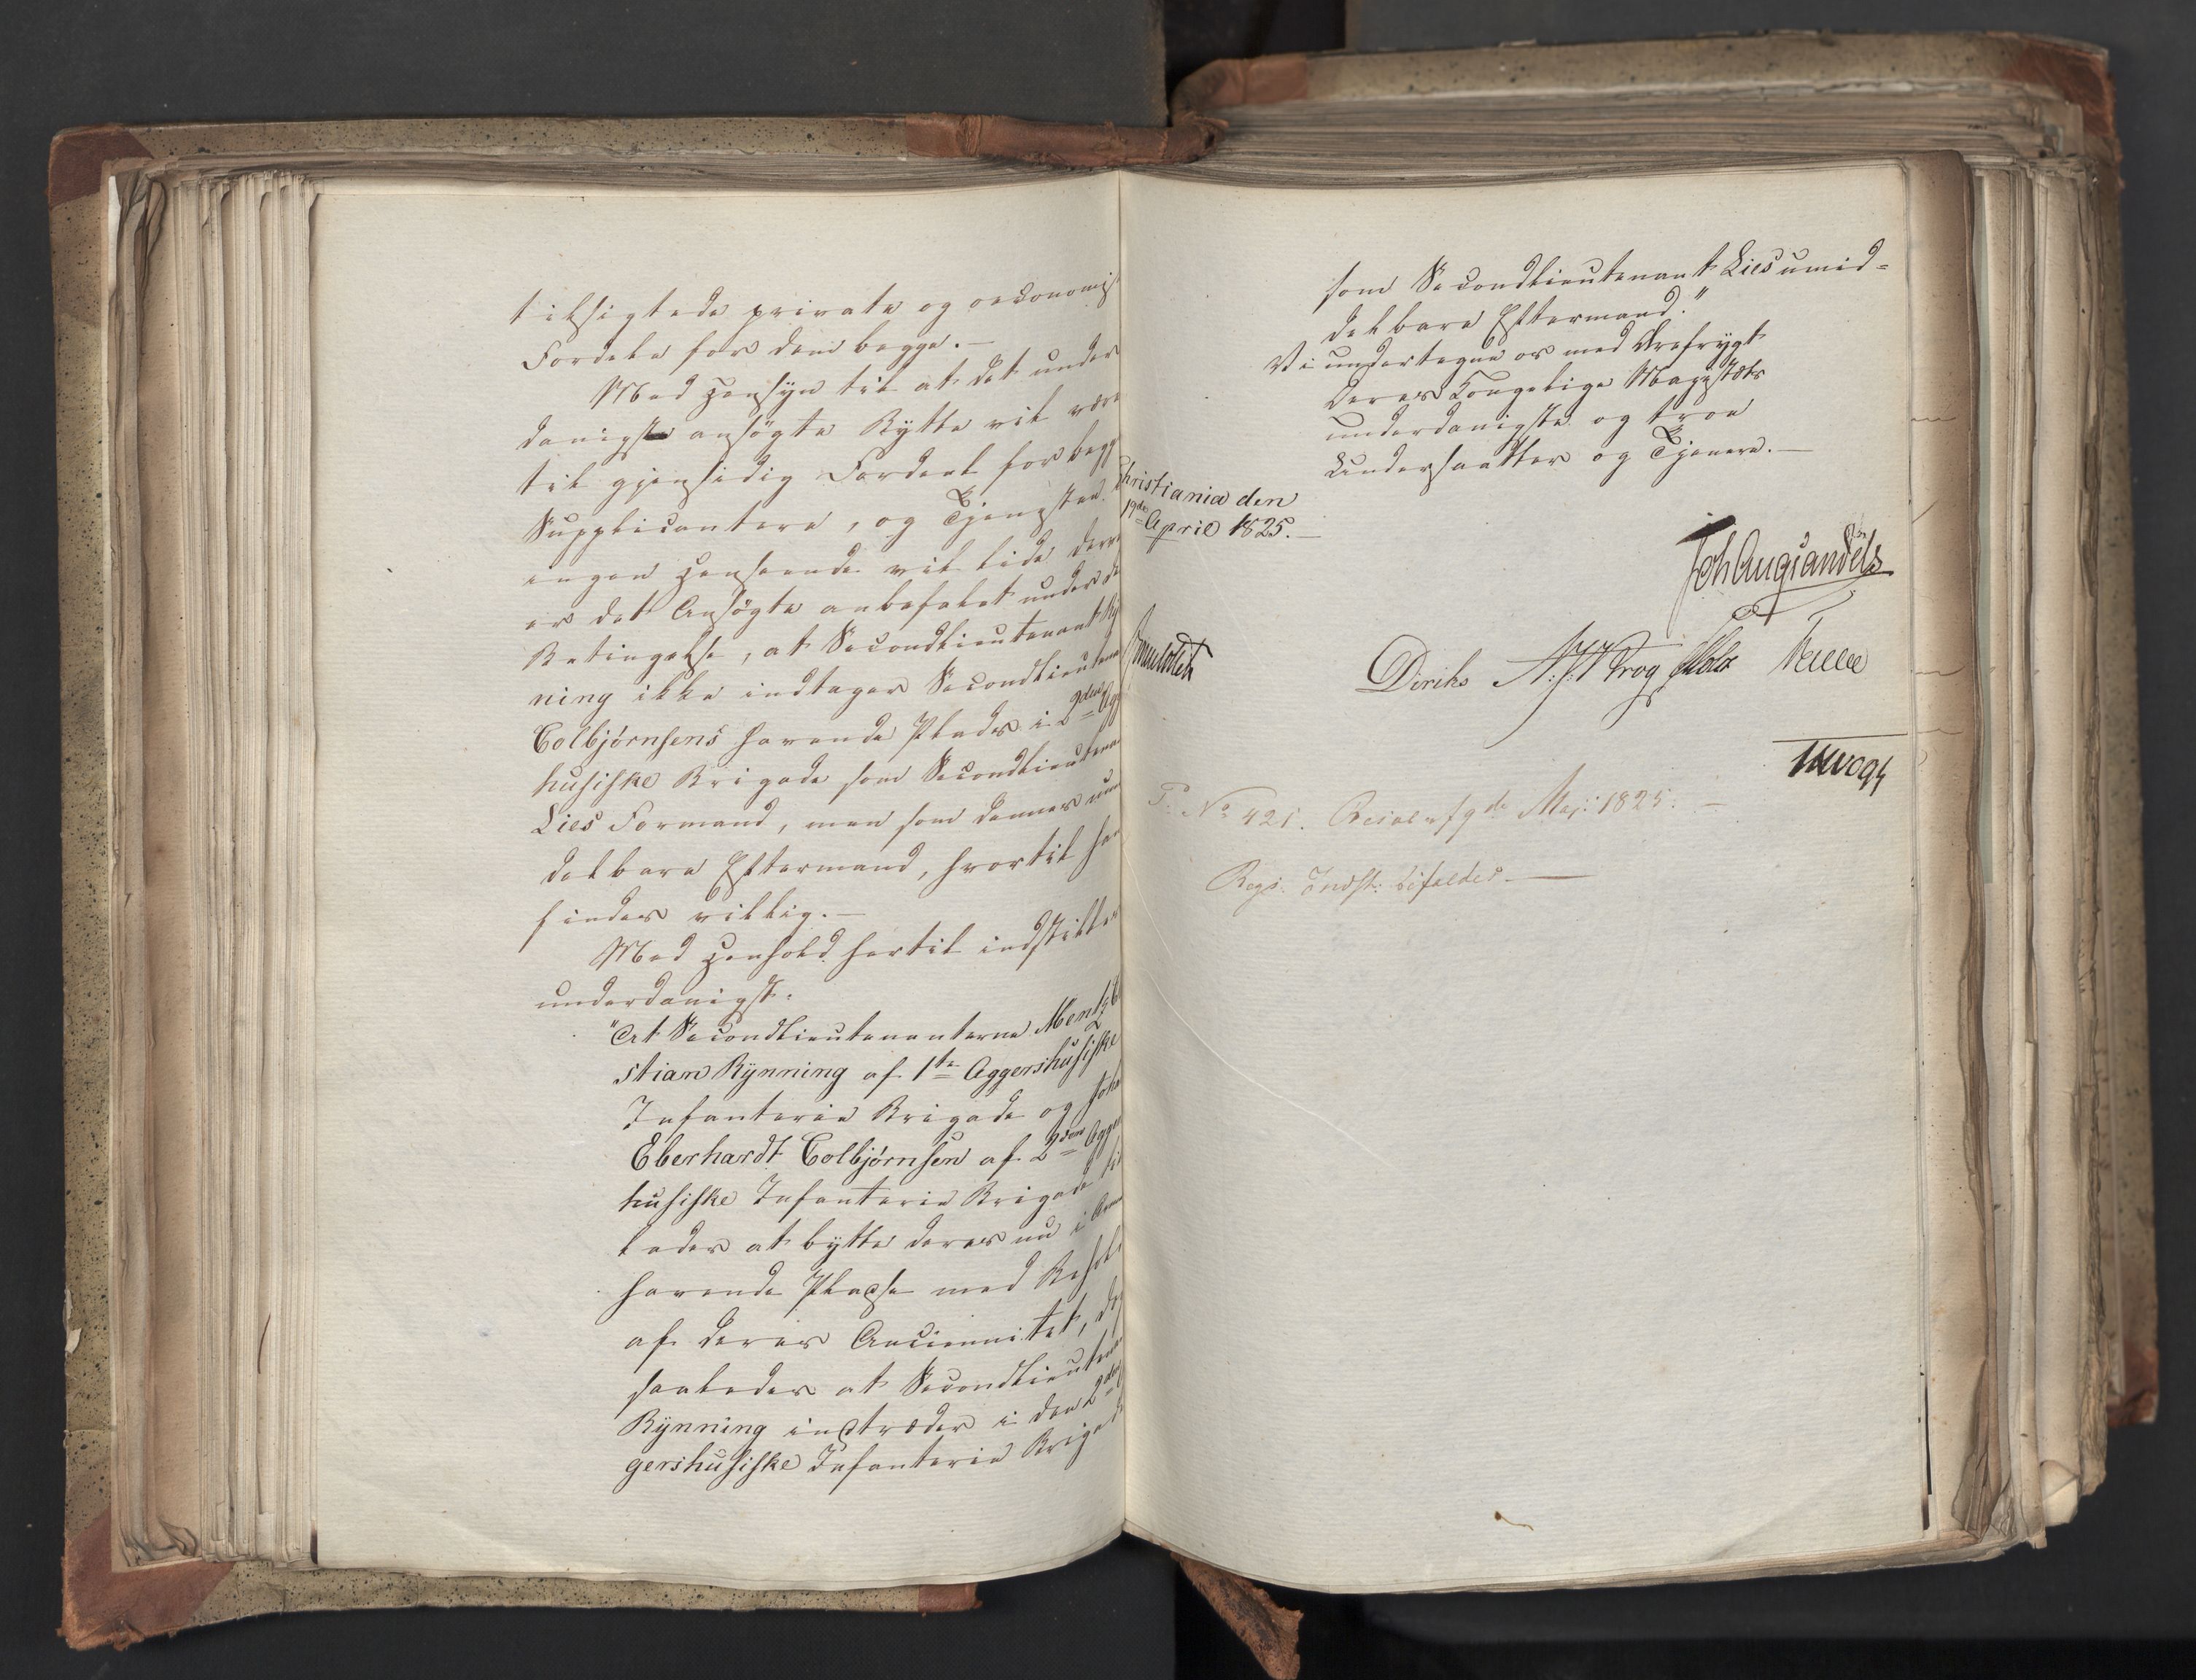 tilsigtede private og oekonomis
Fordele for dem begge. —
Med Hensyn til at det under
danigst ansøgte Bytte vil være
til gjensidig Fordeel for begg
Supplicantere, og Tjenesten
ingen Henseende vil lide derv
er det Ansøgte anbefalet under de
Betingelse, at Secondlieutenant Ry
ning ikke indtager Secondlieutena
Colbjørnsens havende Plads i 2den Ag
husiske Brigade som Secondlieutena
Lies Formand, men som dennes um
delbare Eftermand, hvortil ha
findes villig. —
Med Henhold hertil indstilles
underdanigst:
"At Secondlieutenanterne Mentz
stian Rynning af 1ste Aggershusiske
Infanterie Brigade og Joha
Eberhardt Colbjørnsen af 2den Agger
husiske Infanterie Brigade ti
lades at bytte deres nu i Arm
havende Pladse med Behol
af deres Anciennitet, dog
saaledes at Secondlieutena
Rynning indtræder i den 2den
gershusiske Infanterie Brigad
som Secondlieutenant Lies umid=
delbare Eftermand."
Vi undertegne os med Ærefrygt
Deres Kongelige Majestæts
underdanigste og troe
Undersaatter og Tjenere. —
Christiania den
19de April 1825. —
Joh Aug Sandels
Diriks N.J.W Krog Holst
JHVogt
P. No 421. Resol. af 9de Maj: 1825. —
Regj. Indst: bifaldes. —